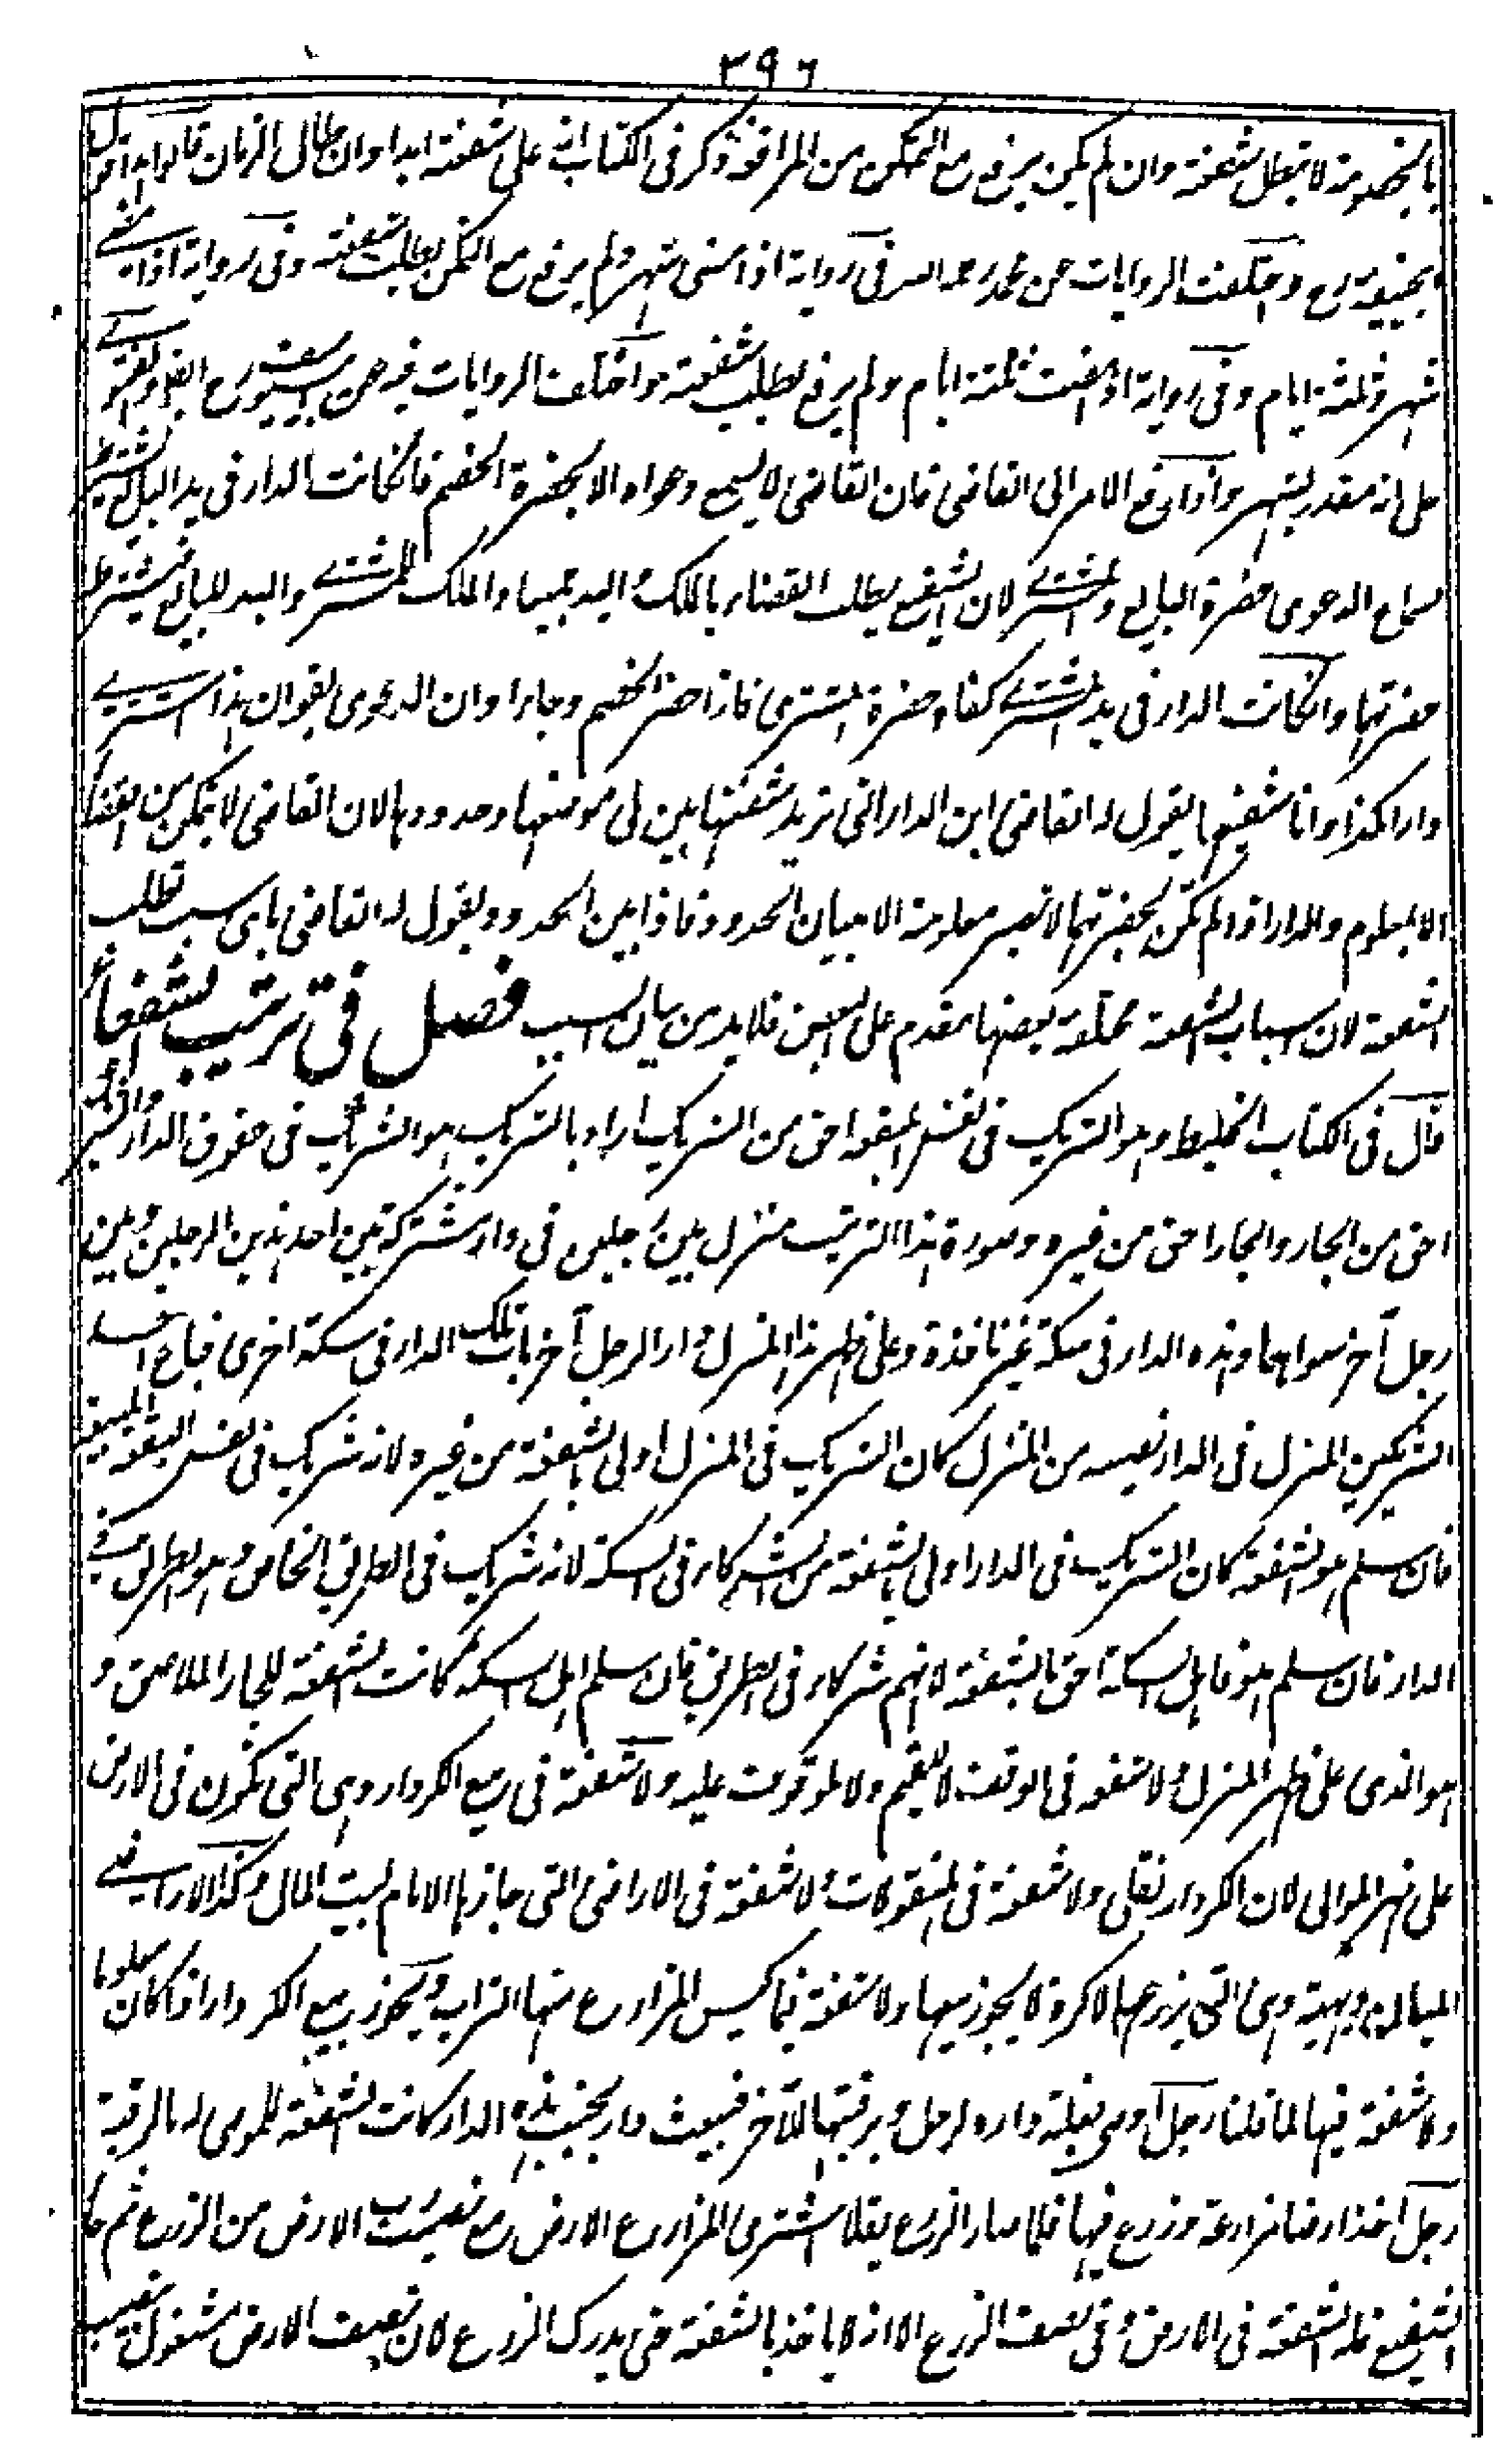 ٣٩٦
بالخصومة لا تبطل شفعته وان لم يكن يرفع مع التمكن من المرافعة ذكر فى الكتاب انه على شفعته ابدا وان طال الزمان قالوا هذا قول
ابيحنيفة رح واختلفت الروايات عن محمد رحمه الله فى رواية اذا مضى شهر ولم يرفع مع التمكن بطلت شفعته وفى رواية اذا مضے
شهر وثلثة ايام وفى رواية اذا مضت ثلثة ايام ولم يرفع بطلت شفعته واختلفت الروايات فيه عن ابى يوسف رح ايضا والفتوے
على انه مقدر بشهر واذا رفع الامر الى القاضى فان القاضى لا يسمع دعواه الا بحضرة الخصم فانكانت الدار فى يد البائع يشترط
لسماع الدعوى حضرة البائع والمشترے لان الشفيع يطلب القضاء بالملك واليد جميعا والملك للمشترے واليد للبائع فيشترط
حضرتهما وانكانت الدار فى يد المشترے كفاه حضرة المشترى فاذا حضر الخصم وجاءا وان الدعوى يقول ان هذا اشترے
دارا كذا وانا شفيعها يقول له القاضى اين الدار التى تريد شفعتها بين لى موضعها وحدودها لان القاضى لا يتمكن من القضا
الا بمعلوم والدار اذا لم تكن بحضرتهما لا تصير معلومة الا ببيان الحدود فاذا بين الحدود ويقول له القاضى باى سبب تطلب
الشفعة لان اسباب الشفعة مختلفة بعضها مقدم على البعض فلا بد من بيان السبب فصل فى ترتيب الشفعاء
قال فى الكتاب الخليط وهو الشريك فى نفس المبيع احق من الشريك اراد بالشريك هو الشريك فى حقوق الدار والشريك
احق من الجار والجار احق من غيره وصورة هذا الترتيب منزل بين رجلين فى دار مشتركة بين احد هذين الرجلين وبين
رجل آخر سواهما وهذه الدار فى سكة غير نافذة وعلى ظهر هذا المنزل دار الرجل آخر باب تلك الدار فى سكة اخرى فباع احد
الشريكين المنزل فى الدار نصيبه من المنزل كان الشريك فى المنزل اولى بالشفعة من غيره لانه شريك فى نفس البقعة المبيعة
فان سلم هو الشفعة كان الشريك فى الدار اولى بالشفعة من الشركاء فى السكة لانه شريك فى الطريق الخاص وهو الطريق فے
الدار فان سلم هو فاهل السكة احق بالشفعة لانهم شركاء فى الطريق فان سلم اهل السكة كانت الشفعة للجار الملاصق و
هو الذى على ظهر المنزل ولا شفعة فى الوقف لا للقيم ولا للموقوف عليه ولا شفعة فى بيع الكردار وهى التى تكون فى الارض
على نهر الموالى لان الكردار نقلى ولا شفعة فى المنقولات ولا شفعة فى الاراضى التى حازها الامام لبيت المال وكذا الاراضے
وهى التى يزرعها الاكرة لا يجوز بيعها ولا شفعة فيما كبس المزارع منها التراب ويجوز بيع الكردار اذا كان معلوما
ولا شفعة فيها لما قلنا رجل اوصى بغلة داره لرجل وبرقبتها لآخر فبيعت دار بجنب هذه الدار كانت الشفعة للموصى له بالرقبة
رجل اخذ ارضا مزارعة وزرع فيها فلما صار الزرع بقلا اشترى المزارع الارض مع نصيب رب الارض من الزرع ثم جا
الشفيع فله الشفعة فى الارض وفى نصف الزرع الا انه لا ياخذ بالشفعة حتى يدرك الزرع لان نصف الارض مشغول بنصيب